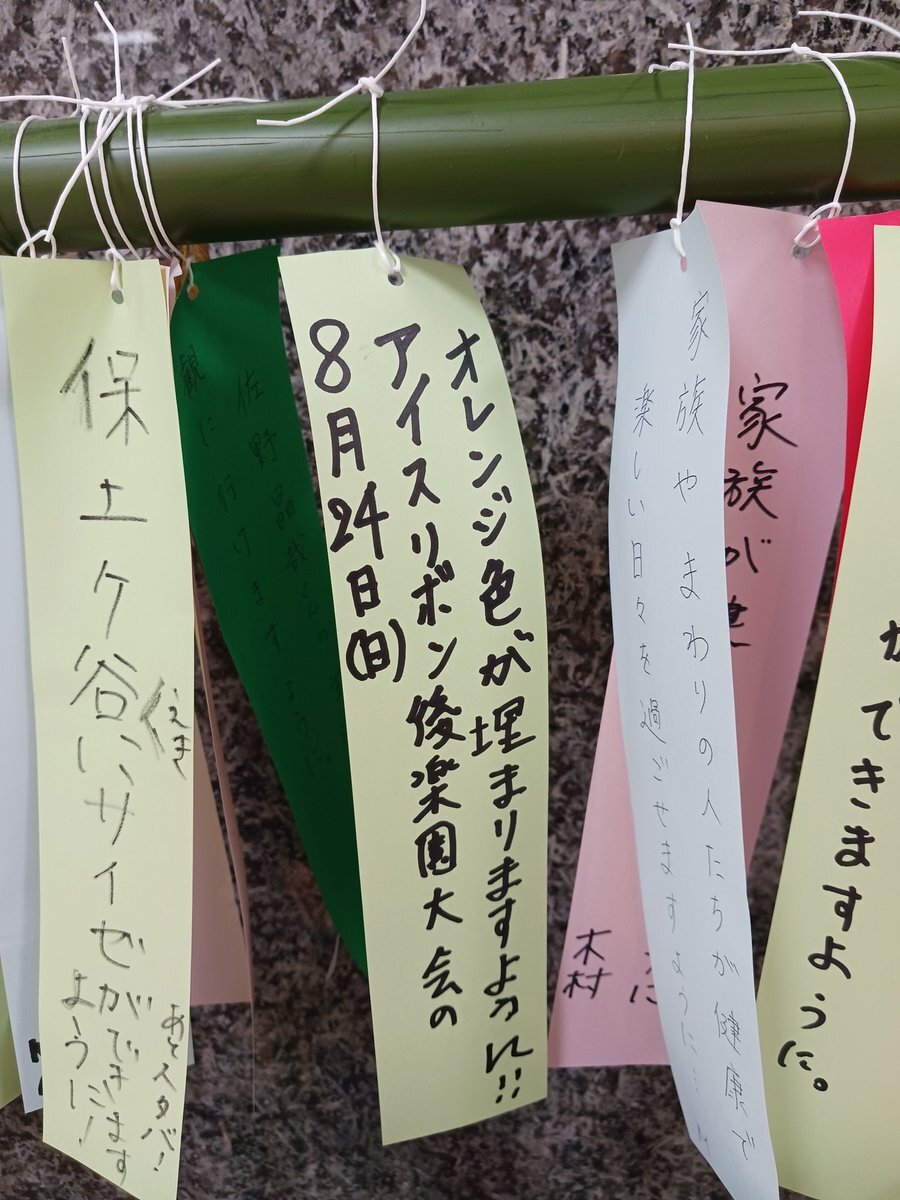 保土ケ谷に
えき
サイゼができます
ように!
あとスタバ!
佐野晶哉くんの
観に行けますように
8月24日(日)
アイスリボン後楽園大会の
オレンジ色が埋まりますように!!
家族やまわりの人たちが健康で
楽しい日々を過ごせますように…
家族が健
木村
ができますように。